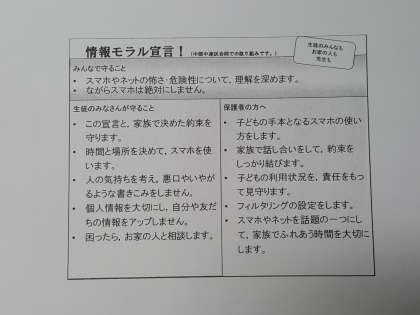 情報モラル宣言！（中部中連区合同での取り組みです。）
生徒のみんなも
お家の人も
先生も
みんなで守ること
・ スマホやネットの怖さ・危険性について，理解を深めます。
・ ながらスマホは絶対にしません。
生徒のみなさんが守ること
・ この宣言と，家族で決めた約束を
守ります。
・ 時間と場所を決めて，スマホを使
います。
・ 人の気持ちを考え，悪口やいやが
るような書きこみをしません。
・ 個人情報を大切にし，自分や友だ
ちの情報をアップしません。
・ 困ったら，お家の人と相談します。
保護者の方へ
・ 子どもの手本となるスマホの使い
方をします。
・ 家族で話し合いをして，約束を
しっかり結びます。
・ 子どもの利用状況を，責任をもっ
て見守ります。
・ フィルタリングの設定をします。
・ スマホやネットを話題の一つにし
て，家族でふれあう時間を大切に
します。